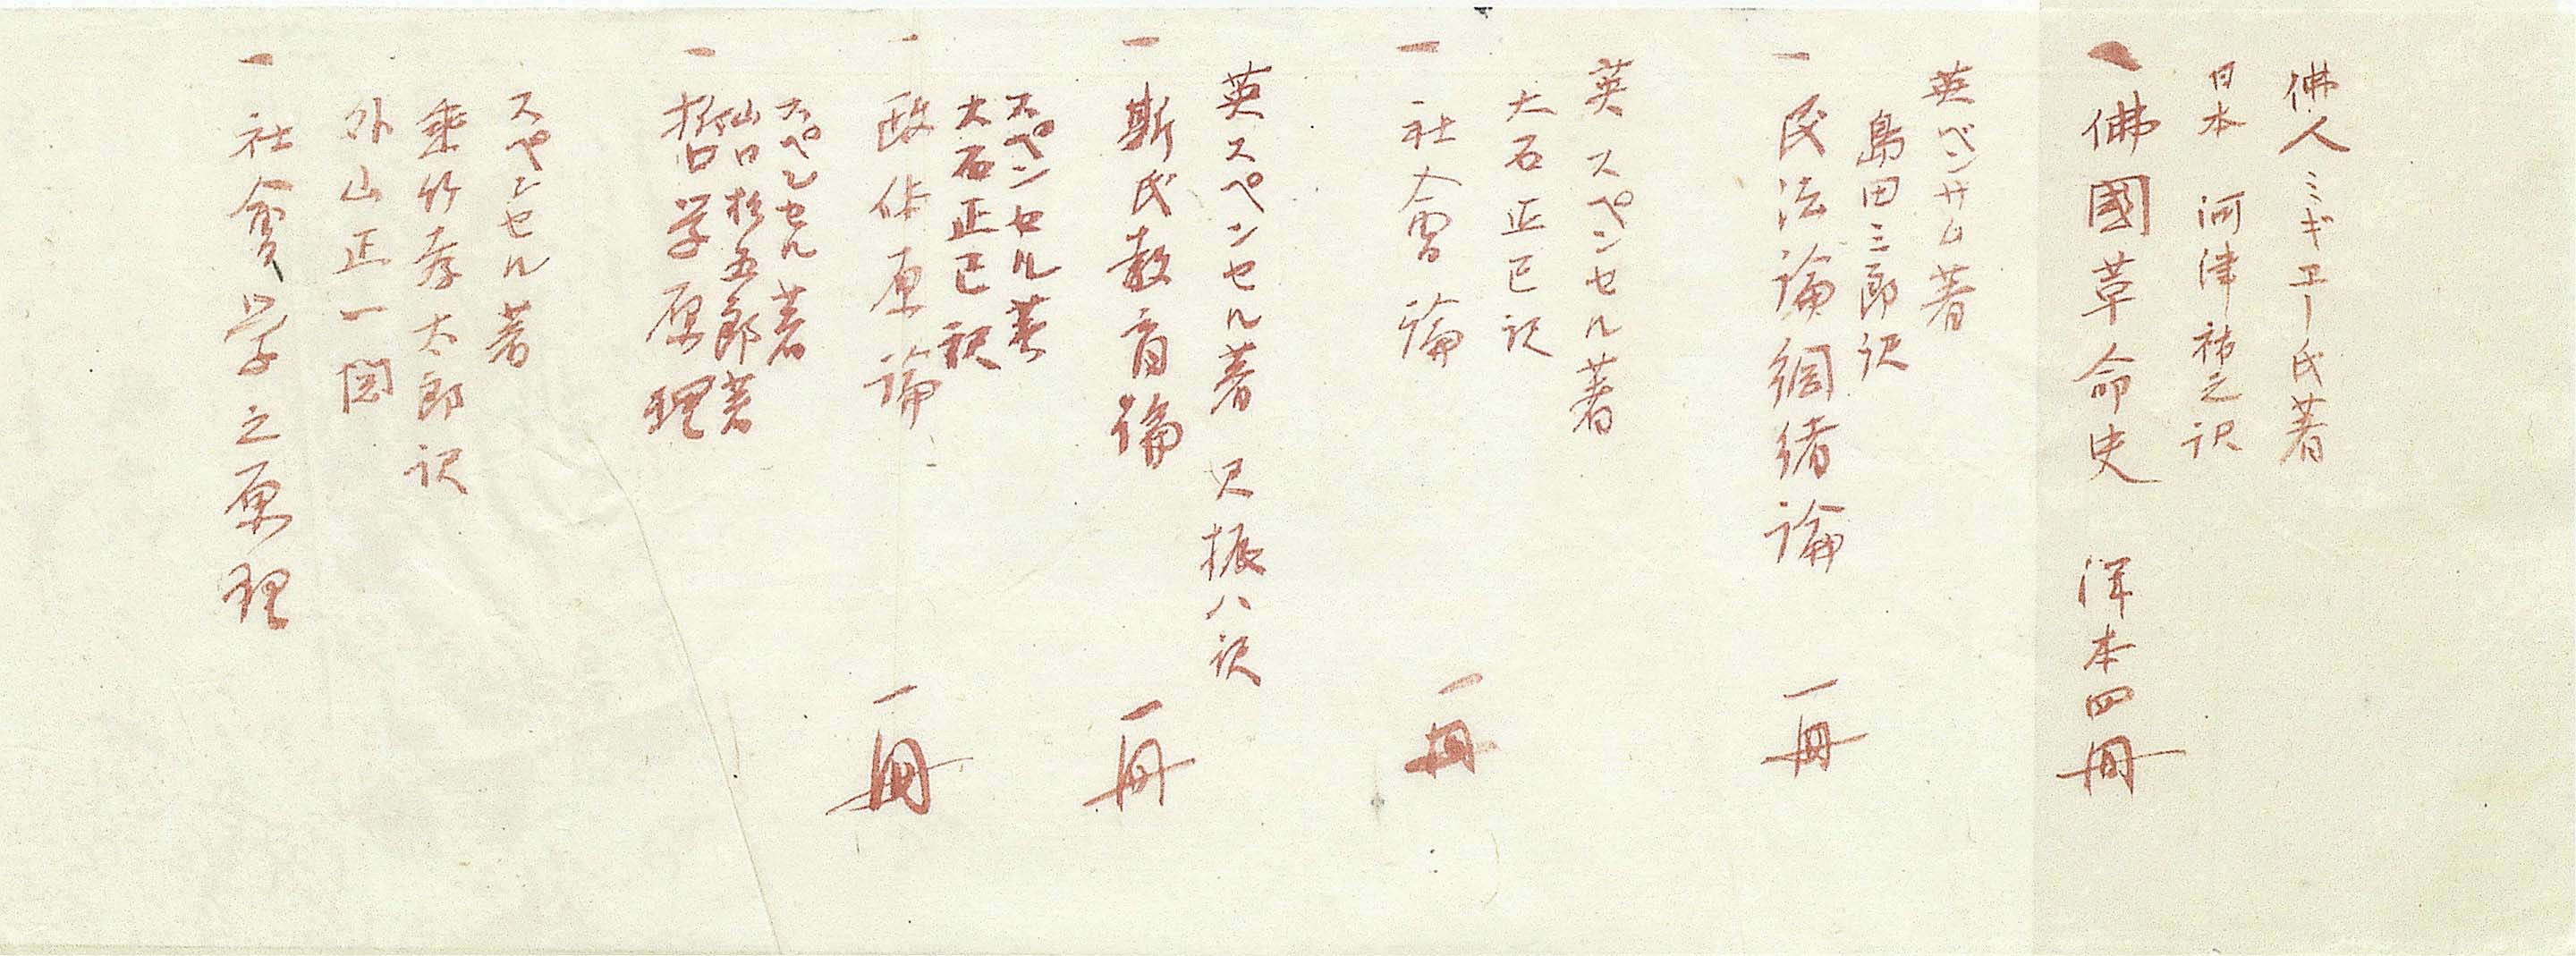 佛人ミギエー氏著
日本 河津祐之訳
一佛國革命史 洋本四冊
英ベンサム著
島田三郎訳
一民法論綱緒論 一冊
英スペンセル著
大石正巳訳
一社会論 一冊
英スペンセル著 尺振八訳
一斯氏教育論 一冊
スペンセル著
大石正巳訳
一政体原論 一冊
スペンセル著
山口松五郎著
一哲学原理
スペンセル著
乗竹孝太郎訳
外山正一閲
一社會学之原理